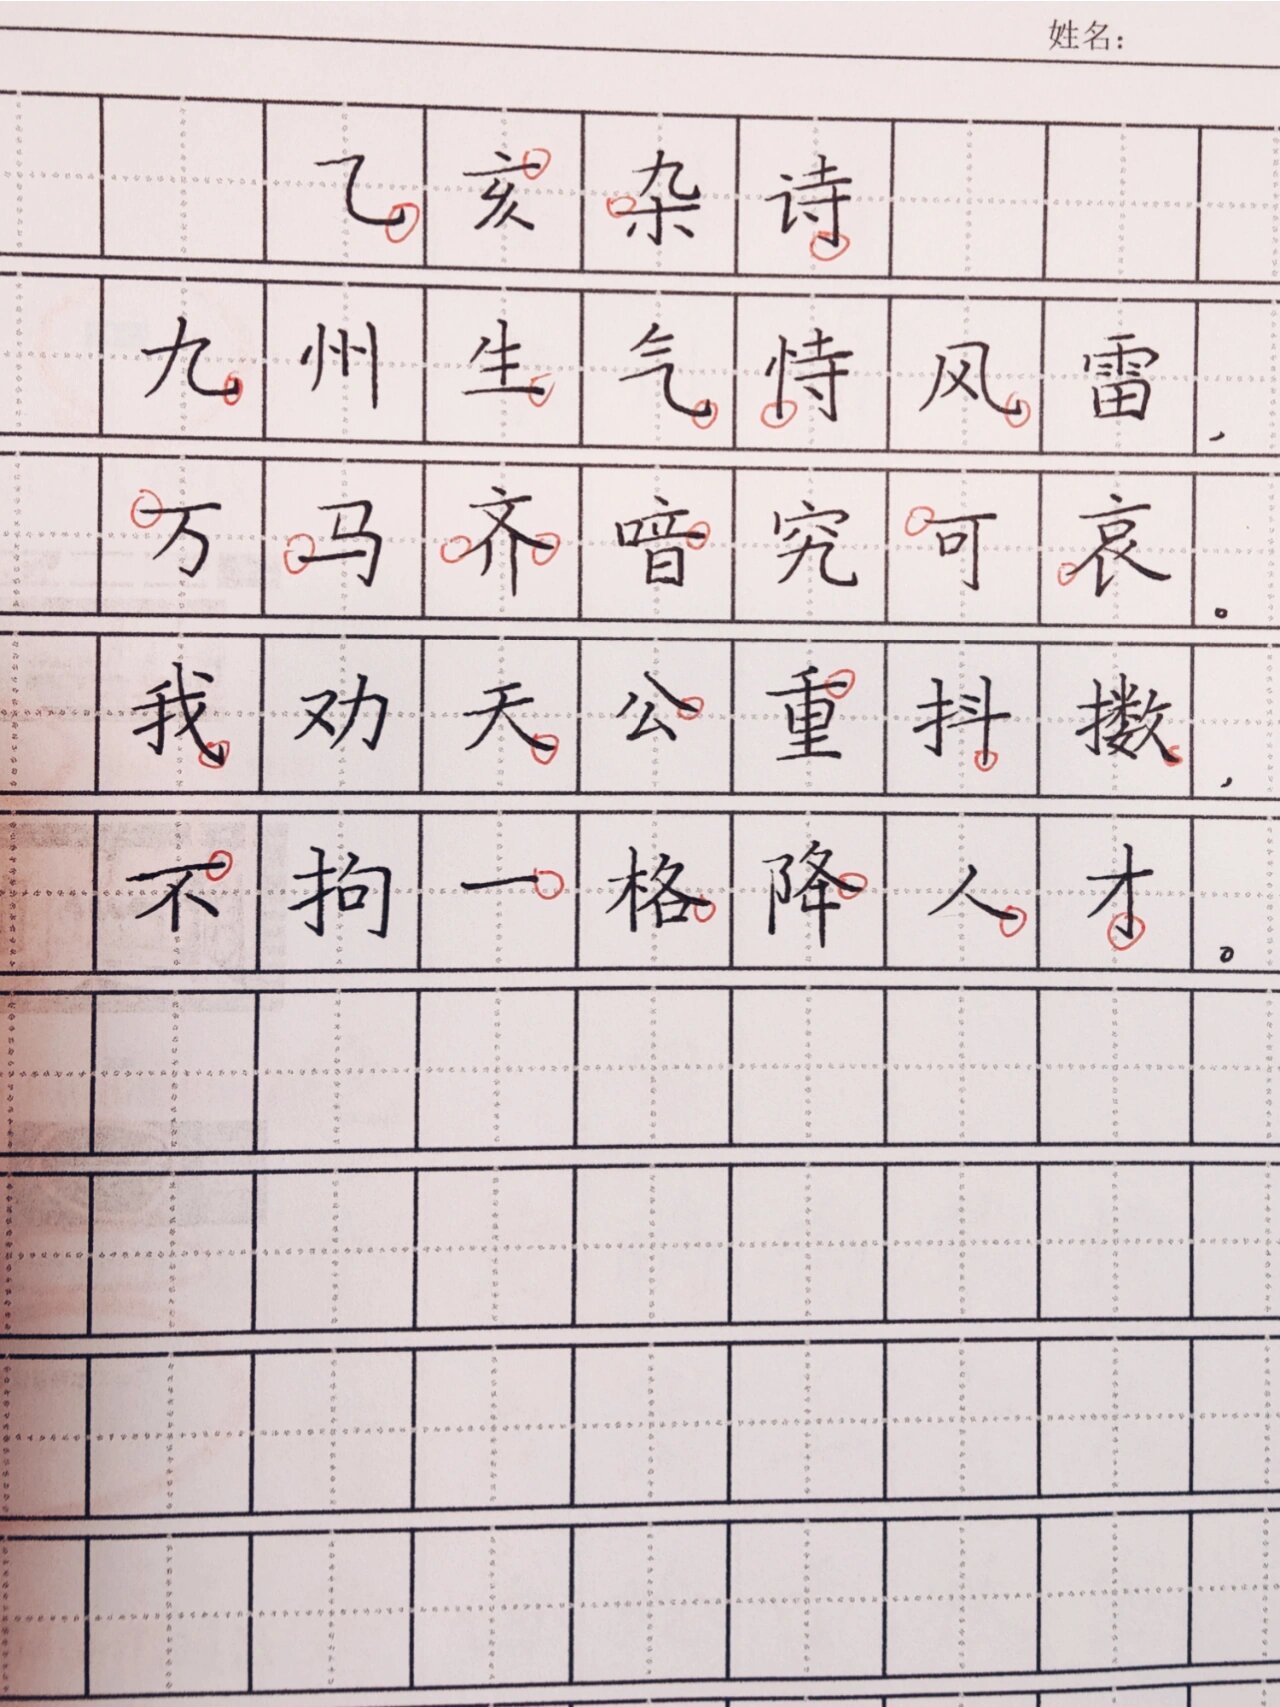 姓名：
乙亥杂诗
九州生气恃风雷，
万马齐喑究可哀。
我劝天公重抖擞，
不拘一格降人才。